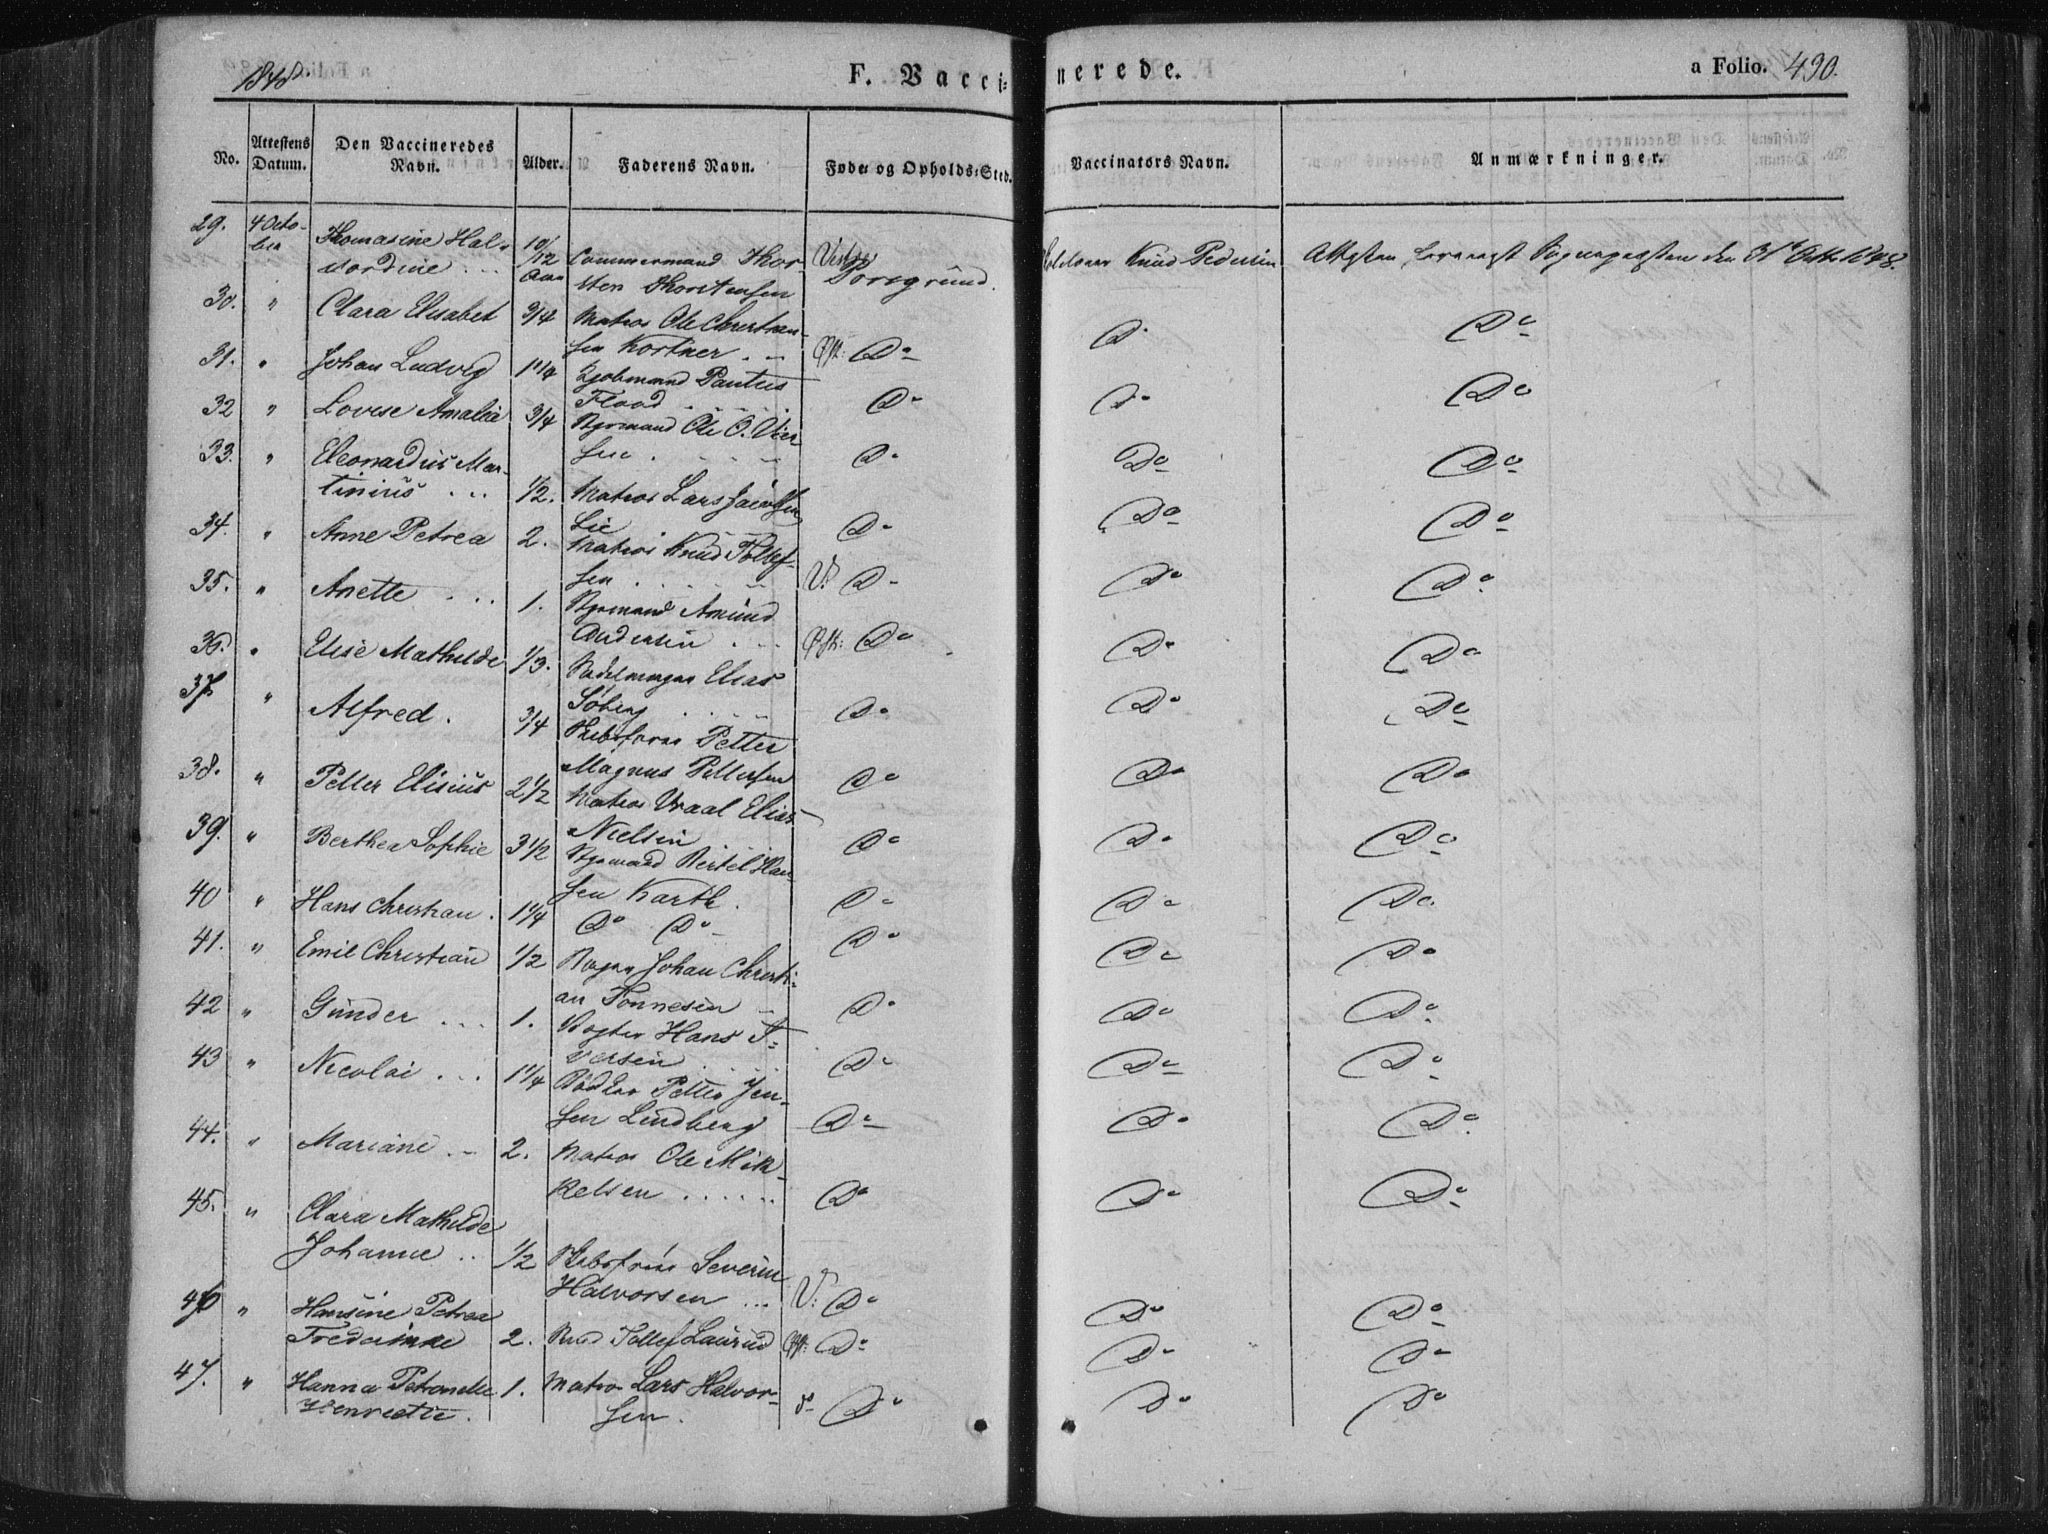 1848.
F. Vaccinerede.
a Folio. 490.
No. Attestens Datum. Den Vaccineredes Navn. Alder. Faderens Navn. Føde- og Opholds-Sted. Vaccinators Navn. Anmærkninger.
29. 4 Octo- Thomasine Hal- 10/12
ber vordine ... Aar Tømmermand Thor- Vestre Knud Pedersen Attesten den 31te Octr 1848.
sten Thorstensen Porsgrund.
30. " Clara Elisabet 3/4 Matros Ole Christian- Do Do
sen Kortner .. Øst: Do
31. " Johan Ludvig 1 1/4 Kjøbmand Pantus Do Do
Flood .... Do
32 " Lovise Amalia 3/4 Styrmand Ole O. Do Do
sen ..... Do
33. " Eleonardus Mar-
tinius ... 1/2. Matros Lars Jacobsen Do Do
Lie Do
34. " Anne Petrea 2. Matros Knud Tollef- Do Do
sen ..... V. Do
35. " Anette .... 1. Styrmand Amund Do Do
Andersen ... Øst: Do
36. " Elise Mathilde 1/3. Sadelmager Elias Do Do
Søberg .... Do
37. " Alfred. 3/4 Skibsfører Petter Do Do
Magnus Pettersen Do
38. " Petter Elisius 2 1/2 Matros Vraal Elias Do Do
Nielsen Do
39. " Berthea Sophie 3 1/2 Styrmand Bertel Han- Do Do
sen Karth. Do
40 " Hans Christian. 1 1/4 Do Do Do Do Do
41. " Emil Christian 1/2 Johan Christi- Do Do
an Tønnesen .. Do
42 " Gunder ... 1. Hans I- Do Do
versen .... Do
43 " Nicolai ... 1 1/4 Bødker Petter Jen- Do Do
sen Lindberg Do
44. " Mariane .. 2. Matros Ole Mik- Do Do
kelsen ...... Do
45. " Clara Mathilde
Johanne .. 1/2 Severin Do Do
Halvorsen ... V. Do
46 " Hansine Petrea
Frederikke 2. Tollef Laurud Øst: Do Do Do
47. " Hanna Petronelle 1. Matros Lars Halvor- Do Do Do
Henriette. sen.